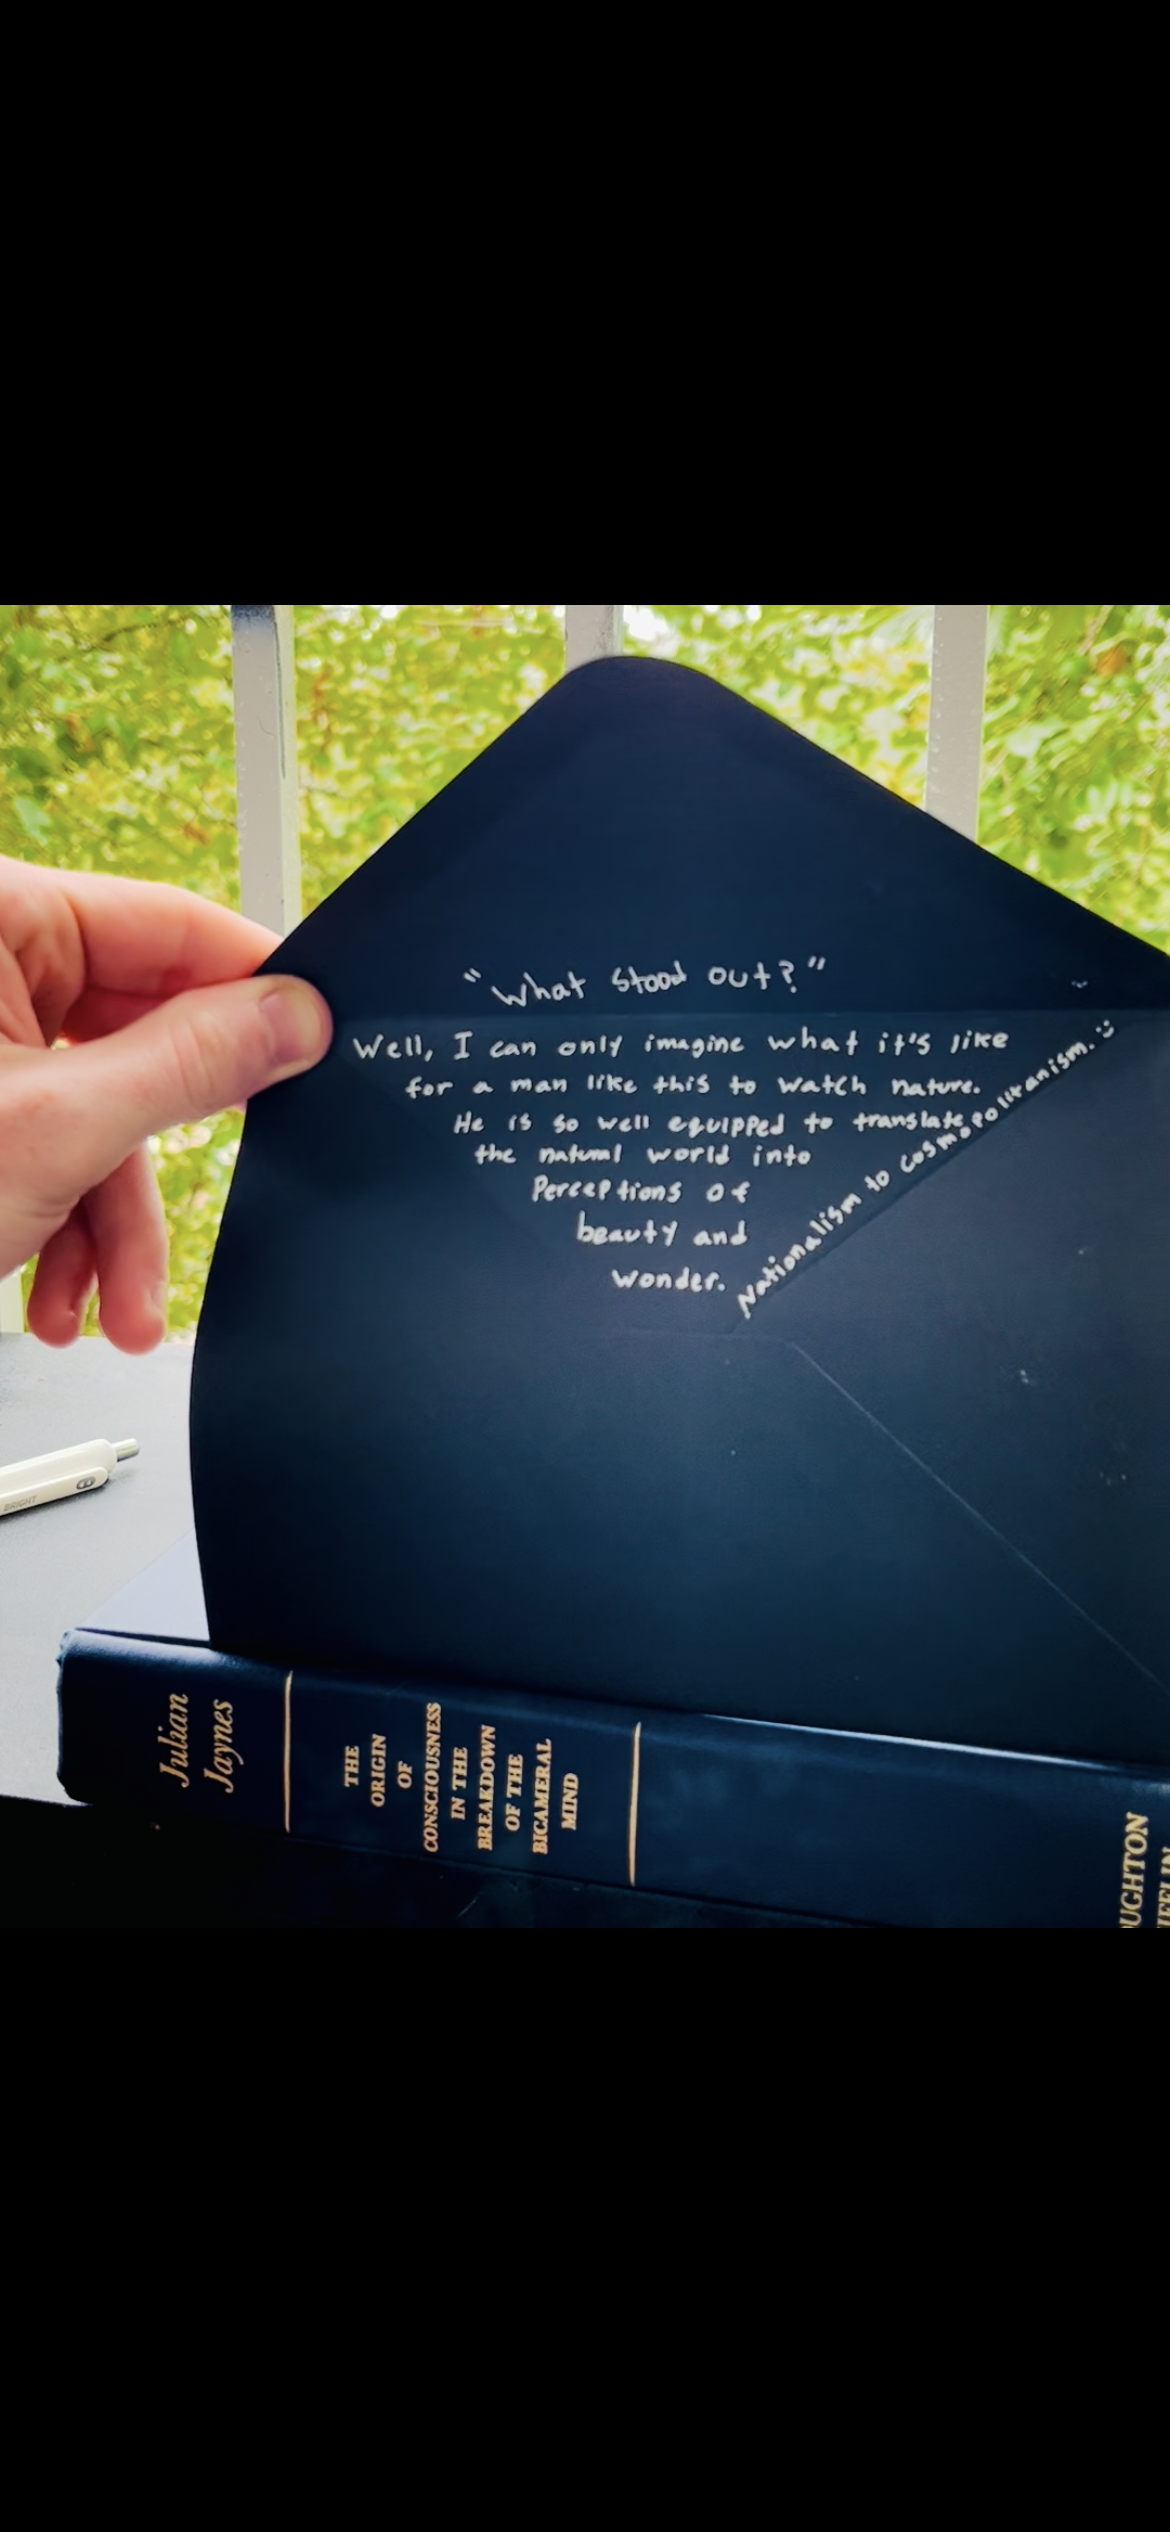 "What stood out?"
Well, I can only imagine what it's like
for a man like this to watch nature.
He is so well equipped to translate
the natural world into
Perceptions of
beauty and
wonder.
Nationalism to cosmopolitanism. :)
BRIGHT
Julian
Jaynes
THE
ORIGIN
OF
CONSCIOUSNESS
IN THE
BREAKDOWN
OF THE
BICAMERAL
MIND
OUGHTON
IFFLIN